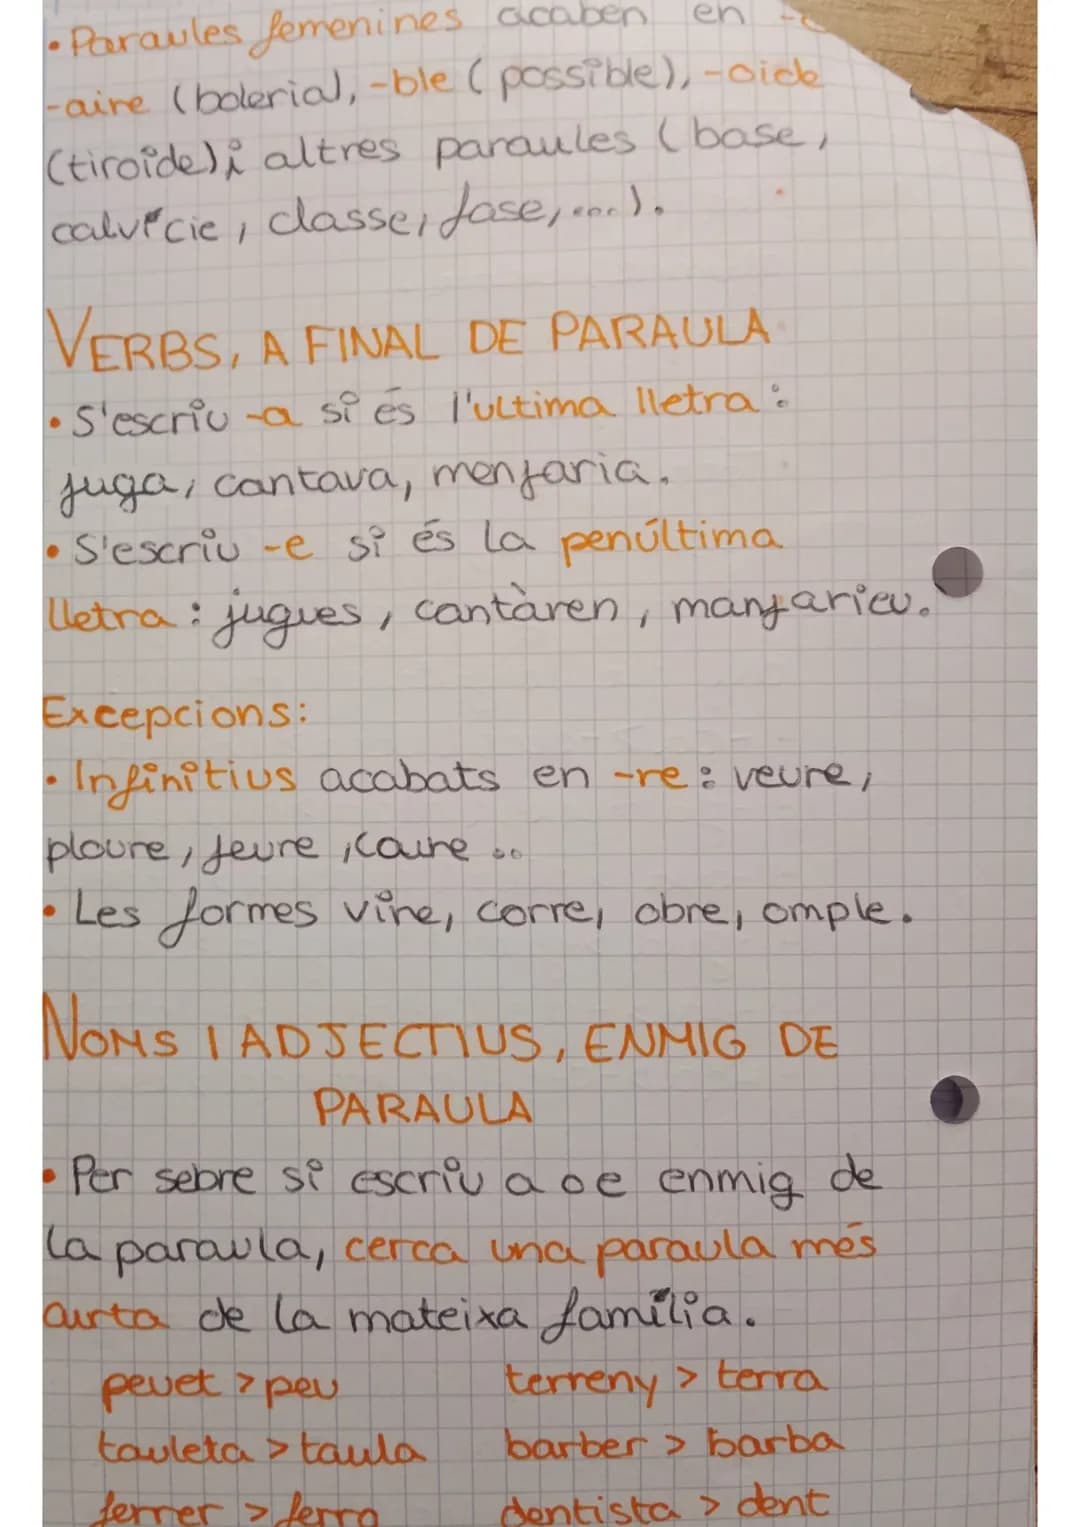 • Paraules femenines acaben en -e
-aire (boleria), -ble (possible), -oide
(tiroide) i altres paraules (base,
calvície, classe, fase, ...).
VERBS, A FINAL DE PARAULA
• S'escriu -a si és l'ultima lletra:
juga, cantava, menjaria.
• S'escriu -e si és la penúltima
lletra: jugues, cantàren, manjarieu.
Excepcions:
• Infinitius acabats en -re: veure,
ploure, jeure, caure ..
• Les formes vine, corre, obre, omple.
NOMS I ADJECTIUS, ENMIG DE
PARAULA
• Per sebre si escriu a o e enmig de
la paraula, cerca una paraula més
curta de la mateixa família.
peuet > peu terreny > terra
tauleta > taula barber > barba
ferrer > ferro dentista > dent